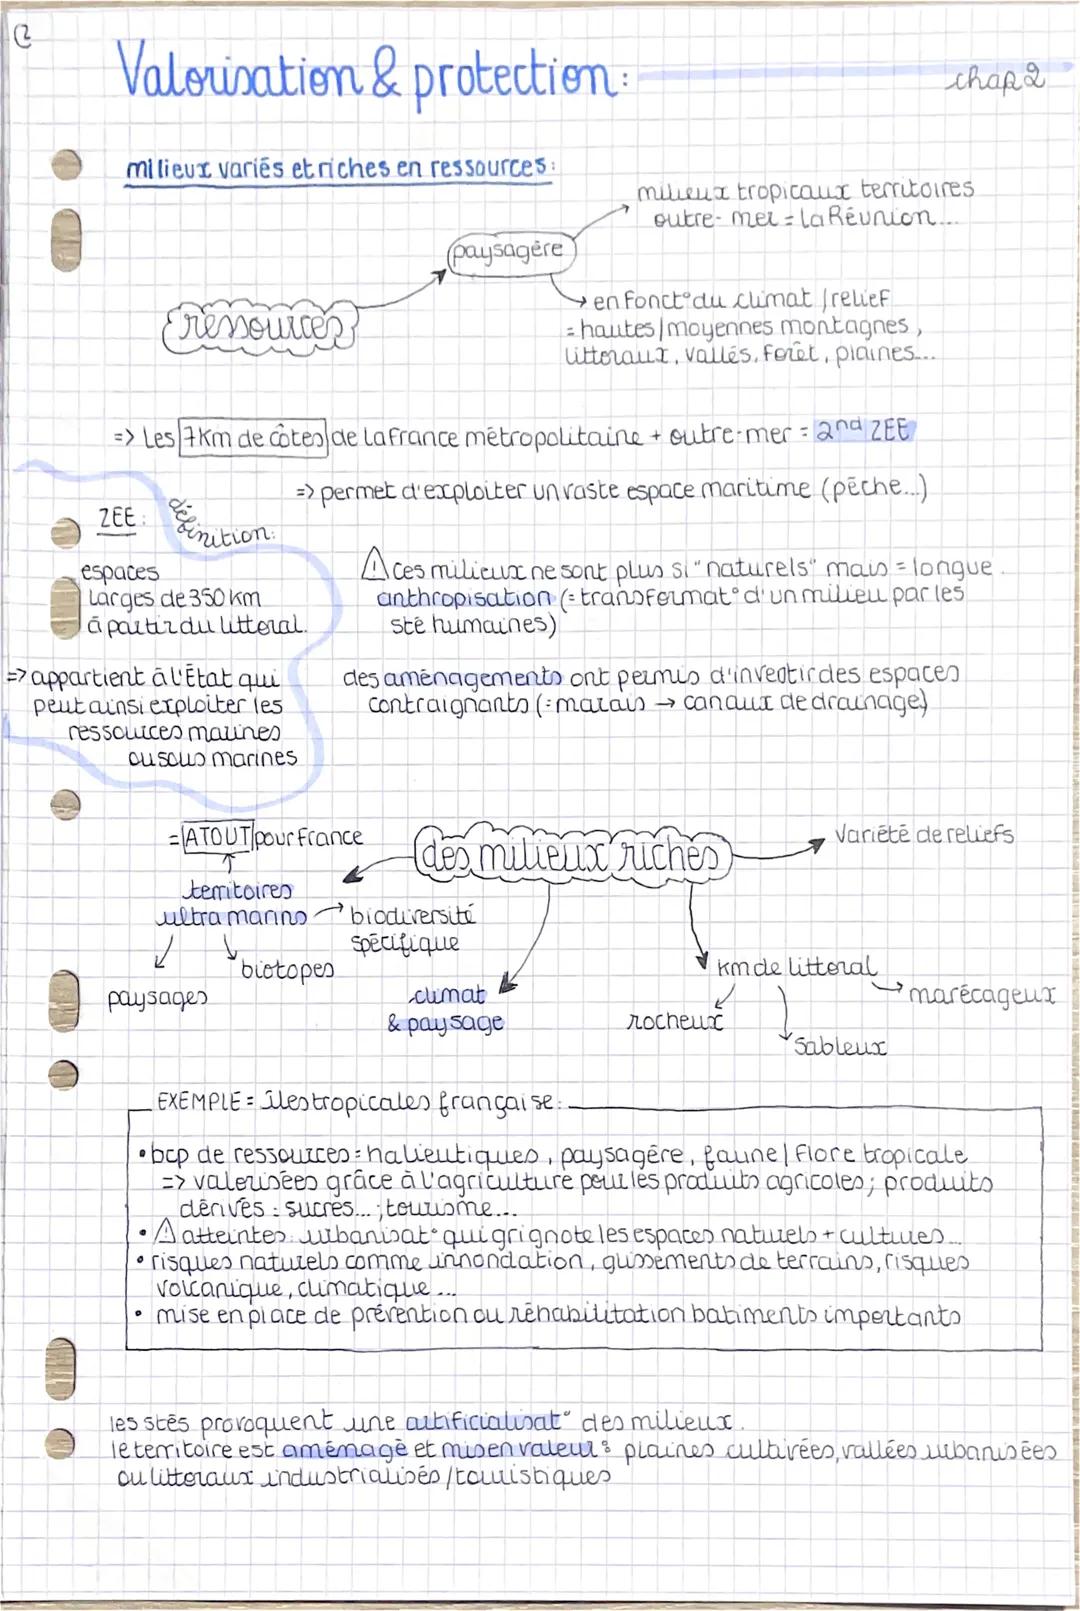 2
Valorisation & protection:
chap 2
milieux variés et riches en ressources:
milieux tropicaux territoires
outre-mer = La Réunion...
paysagère
ressources
en fonct° du climat / relief
= hautes/moyennes montagnes,
littoraux, vallés, forêt, plaines...
=> Les 7Km de côtes de La France métropolitaine + outre-mer = 2nd ZEE
=> permet d'exploiter un vaste espace maritime (pêche...)
ZEE:
définition:
espaces
Larges de 350 km
à partir du littoral.
=> appartient à l'État qui
peut ainsi exploiter les
ressources marines
ou sous marines
⚠ ces milieux ne sont plus si "naturels" mais = longue
anthropisation (= transformat° d'un milieu par les
sté humaines)
des aménagements ont permis d'investir des espaces
contraignants (= marais → canaux de drainage)
= ATOUT pour France
des milieux riches
Variété de reliefs
territoires
ultra marins
biodiversité
spécifique
biotopes
paysages
climat
& paysage
km de littoral
marécageux
rocheux
Sableux
EXEMPLE = îles tropicales française:
• bcp de ressources = halieutiques, paysagère, faune/flore tropicale
=> valorisées grâce à l'agriculture pour les produits agricoles; produits
dérivés : sucres...; tourisme...
• ⚠ atteintes: urbanisat° qui grignote les espaces naturels + cultures...
• risques naturels comme innondation, glissements de terrains, risques
volcanique, climatique...
• mise en place de prévention ou réhabilitation batiments importants
les stés provoquent une artificialisat° des milieux.
le territoire est aménagé et mis en valeur: plaines cultivées, vallées urbanisées
ou littoraux industrialisés/touristiques